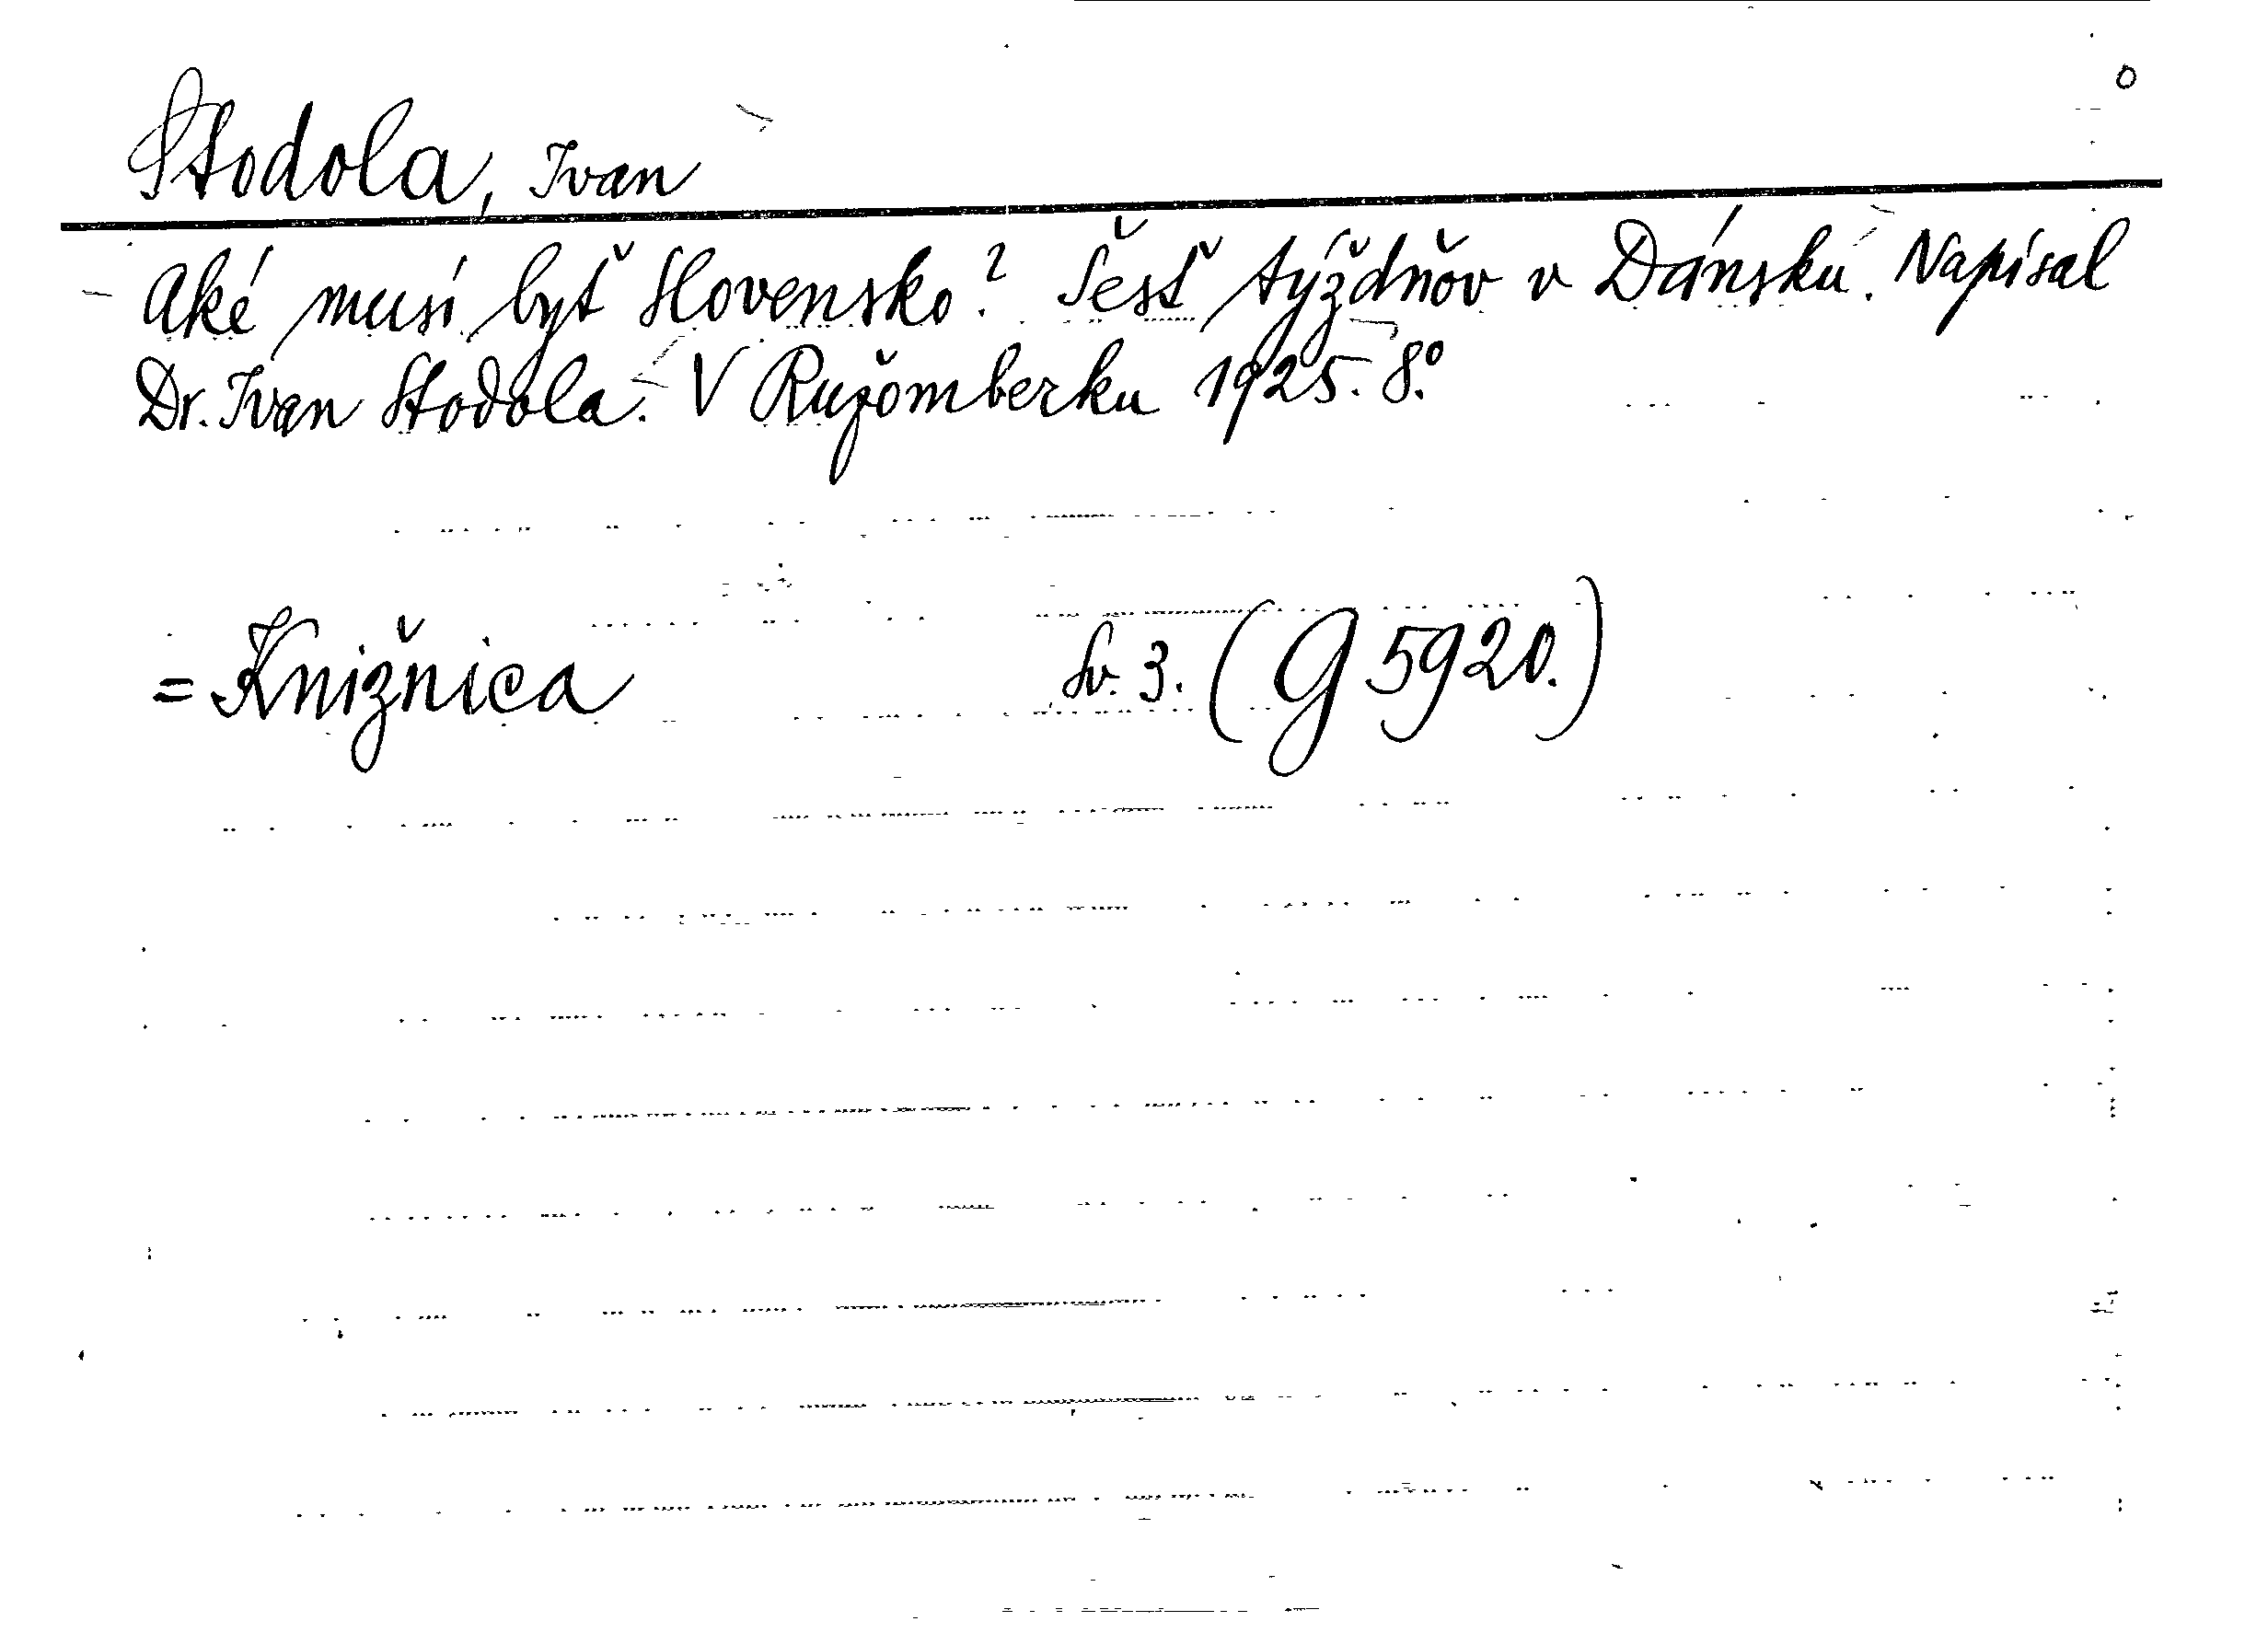 Stodola, Ivan
Aké musí byť Slovensko? Šesť týždňov v Dánsku. Napísal
Dr. Ivan Stodola. V Ružomberku 1925. 8.º
= Knižnica Sv. 3. (G 5920.)